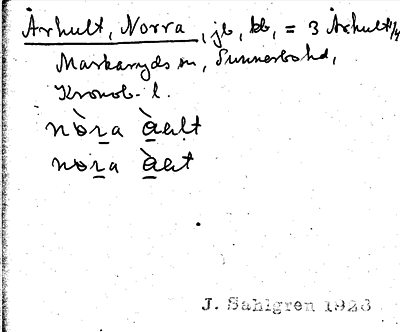 Århult, Norra, jb, kb, = 3 Århult 1/4
Markaryds sn, Sunnerbo hd,
Kronob. l.
nòra àalt
nora àat
J. Sahlgren 1928